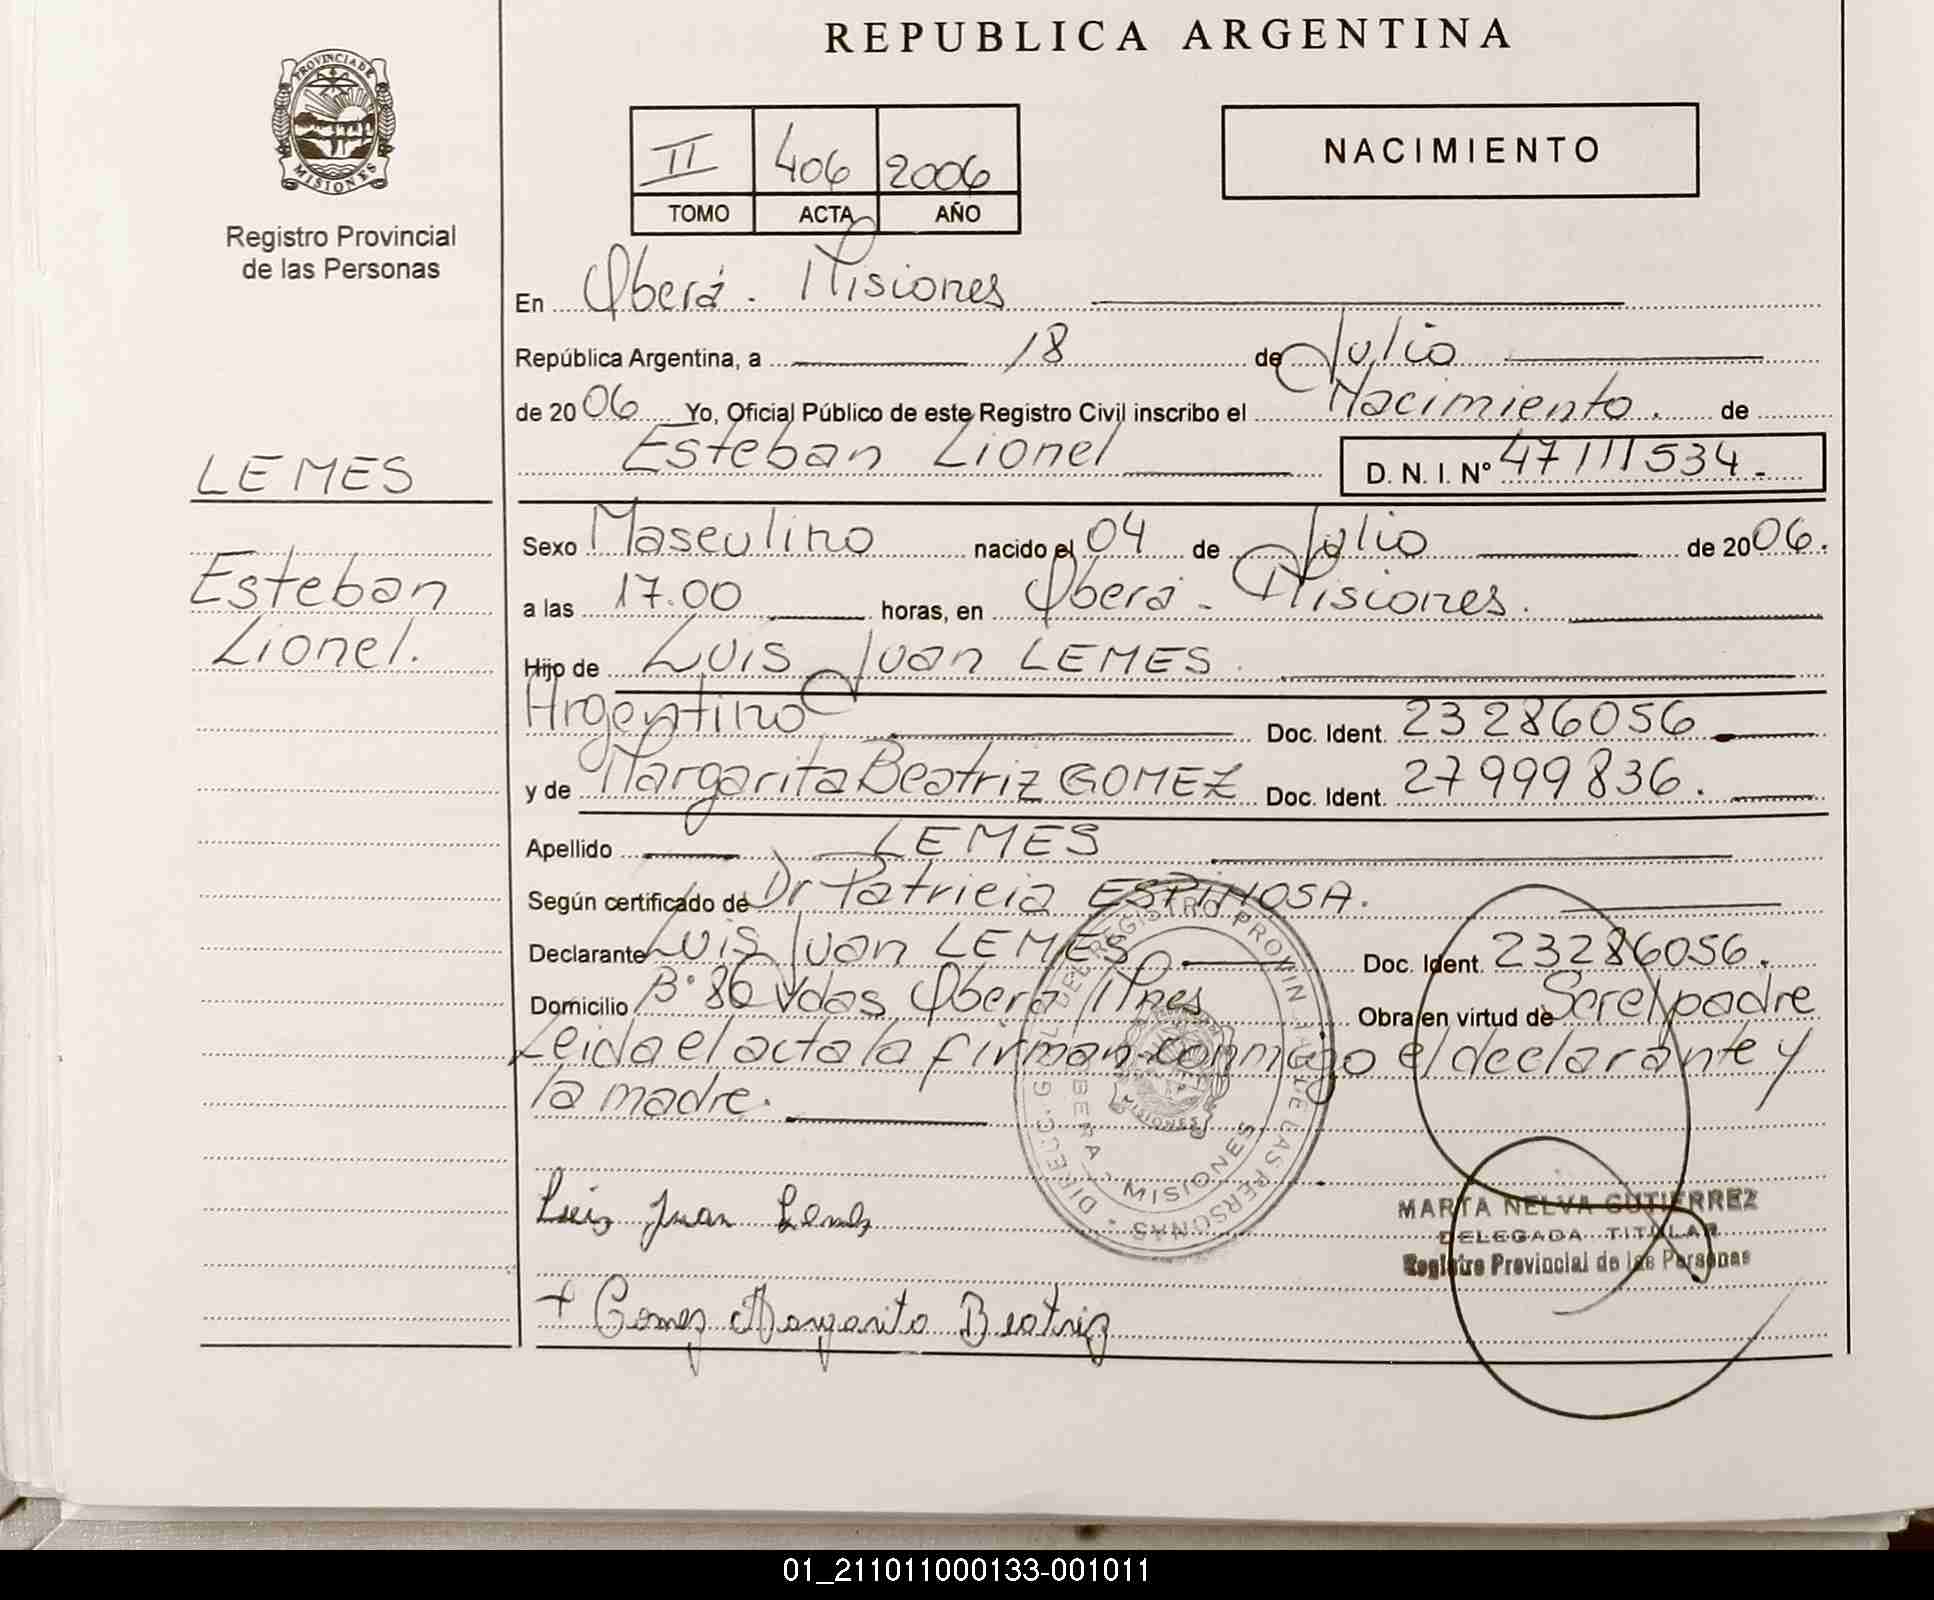 REPUBLICA ARGENTINA
PROVINCIA DE MISIONES
Registro Provincial
de las Personas
II 406 2006
TOMO ACTA AÑO
NACIMIENTO
En Oberá - Misiones
República Argentina, a 18 de Julio
de 2006 Yo, Oficial Público de este Registro Civil inscribo el Nacimiento. de
Esteban Lionel D. N. I. N° 47111534.-
LEMES
Esteban
Lionel.
Sexo Masculino nacido el 04 de Julio de 2006.
a las 17.00 horas, en Oberá - Misiones.
Hijo de Luis Juan LEMES.
Argentino Doc. Ident. 23286056.
y de Margarita Beatriz GOMEZ Doc. Ident. 27999836.
Apellido LEMES
Según certificado de Dr Patricia ESPINOSA.
Declarante Luis Juan LEMES Doc. Ident. 23286056.
Domicilio B° 80 Vdas Oberá Mnes Obra en virtud de Ser el padre
Leida el acta la firman conmigo el declarante y
la madre.
DIREC. GRAL. DEL REGISTRO PROVINCIAL DE LAS PERSONAS
OBERA - MISIONES
MISIONES
Luis Juan Lemes
MARTA NELVA GUTIERREZ
DELEGADA TITULAR
Registro Provincial de las Personas
+ Gomez Margarita Beatriz
01_211011000133-001011